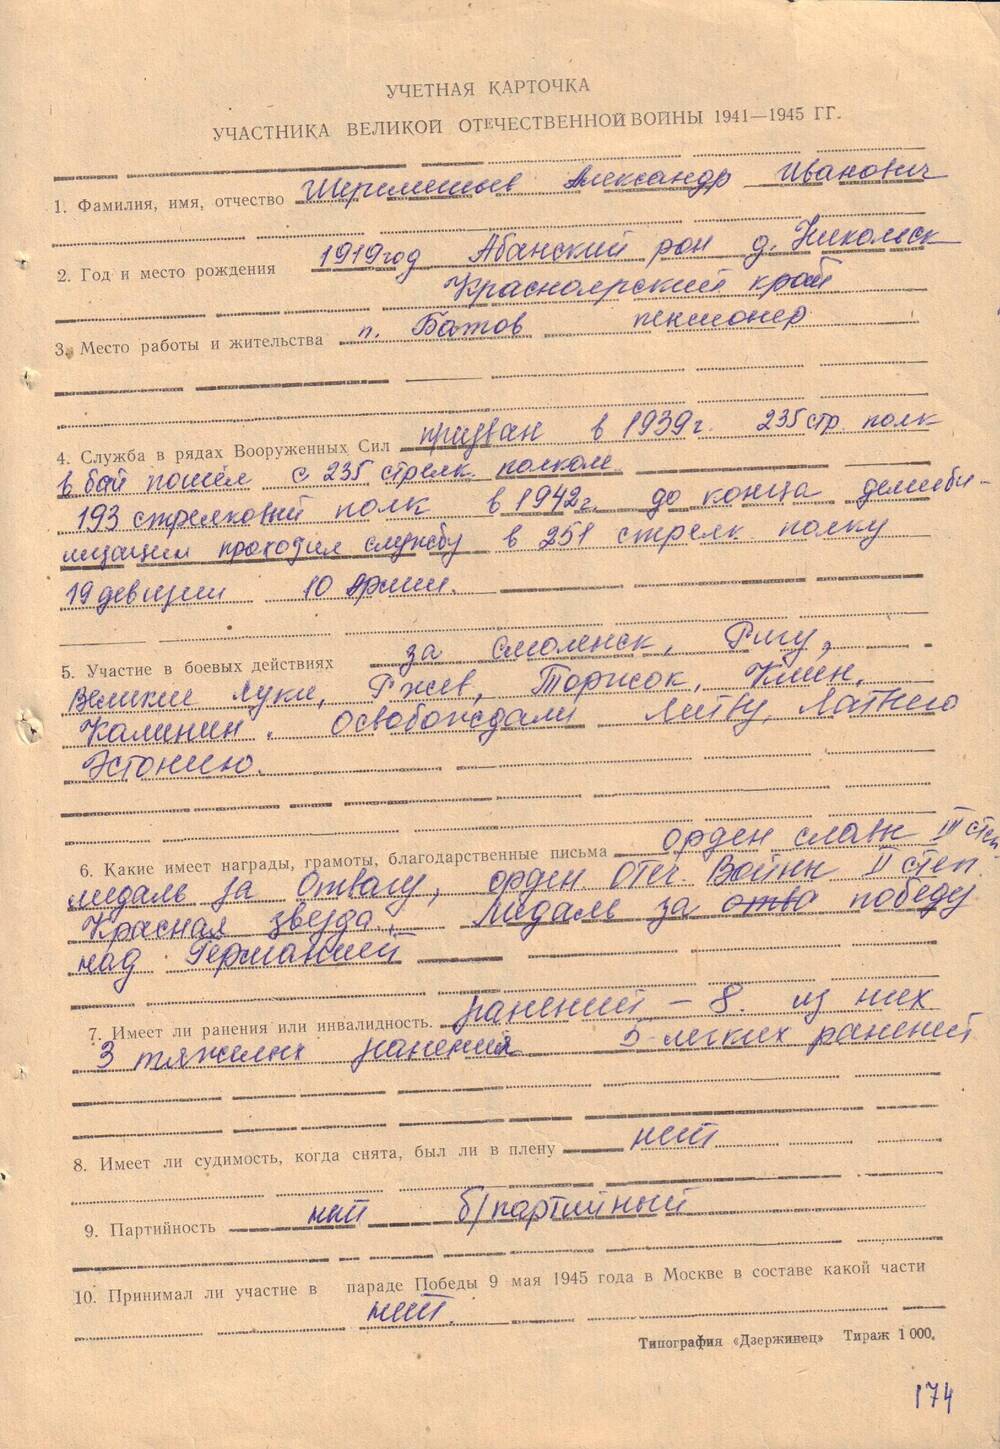 УЧЕТНАЯ КАРТОЧКА
УЧАСТНИКА ВЕЛИКОЙ ОТЕЧЕСТВЕННОЙ ВОЙНЫ 1941—1945 ГГ.
1. Фамилия, имя, отчество Александр Иванович
2. Год и место рождения 1919 год Абанский рон д. Никольск
Красноярский край
3. Место работы и жительства п. Батов пенсионер
4. Служба в рядах Вооруженных Сил призван в 1939 г. 235 стр. полк
в бой пошёл с 235 стрелк. полком
193 стрелковый полк в 1942 г. до конца демоби-
лизации проходил службу в 251 стрелк полку
19 девизии 10 Армии.
5. Участие в боевых действиях за Смоленск, Ригу,
Великие луки, Ржев, Торжок, Клин,
Калинин. освобождали Литву, Латвию
Эстонию.
6. Какие имеет награды, грамоты, благодарственные письма орден славы III степ
медаль за Отвагу, орден Отеч. Войны II степ.
Красная звезда. Медаль за победу
над Германией
7. Имеет ли ранения или инвалидность. ранений – 8. из них
3 тяжелых ранения 5-легких ранений
8. Имеет ли судимость, когда снята, был ли в плену нет
9. Партийность нет б/партийный
10. Принимал ли участие в параде Победы 9 мая 1945 года в Москве в составе какой части
нет.
Типография «Дзержинец» Тираж 1 000.
174